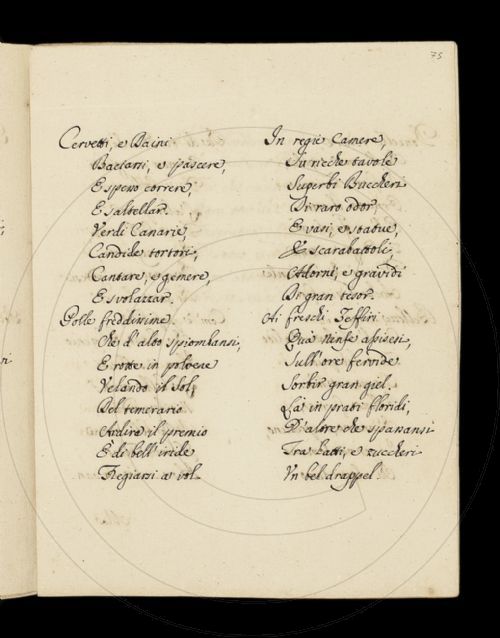 75
Cervetti, e Daini
Baciarsi, e pascere,
E speso correre,
E saltellar.
Verdi Canarie,
Candide tortori,
Cantare, e gemere,
E svolazzar.
Polle freddissime
Che d'alto spiombansi,
E rotte in polvere
Velando il Sol,
Del temerario
Ardire il premio
E di bell'iride
Fregiarsi a vol.
In regie Camere,
Su ricche tavole
Superbi Buccheri
Di raro odor,
E vasi, e statue,
E scarabattoli,
Adorni, e gravidi
Di gran tesor.
Ai freschi Zeffiri
Quà ninfe assisesi,
Sull'ore fervide
Sorbir gran giel,
Là in prati floridi,
D'alore che spansansi
Tra latti, e zuccheri
Un bel drappel.